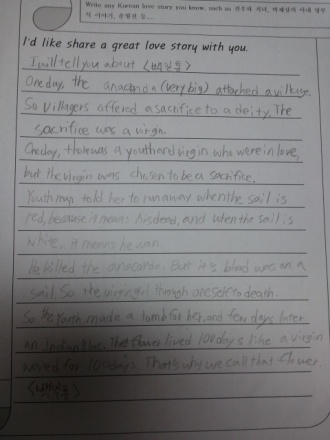 Write any Korean love story you know, such as 견우와 직녀, 박제상의 아내 망부
석 이야기, 운영전 등...
I'd like share a great love story with you.
I will tell you about <백일홍>
One day, the anaconda (very big) attacked a village.
So villagers offered a sacrifice to a deity. The
sacrifice was a virgin.
One day, there was a youth and virgin who were in love,
but the virgin was chosen to be a sacrifice.
Youth man told her to run away when the sail is
red, because it means his dead, and when the sail is
white, it means he won.
He killed the anaconda. But it's blood was on a
sail. So the virgin girl through oneself to death.
So the youth made a tomb for her, and few days later
an The flower lived 100 days like a virgin
waved for 100 days. That's why we call that flower
<백일홍>